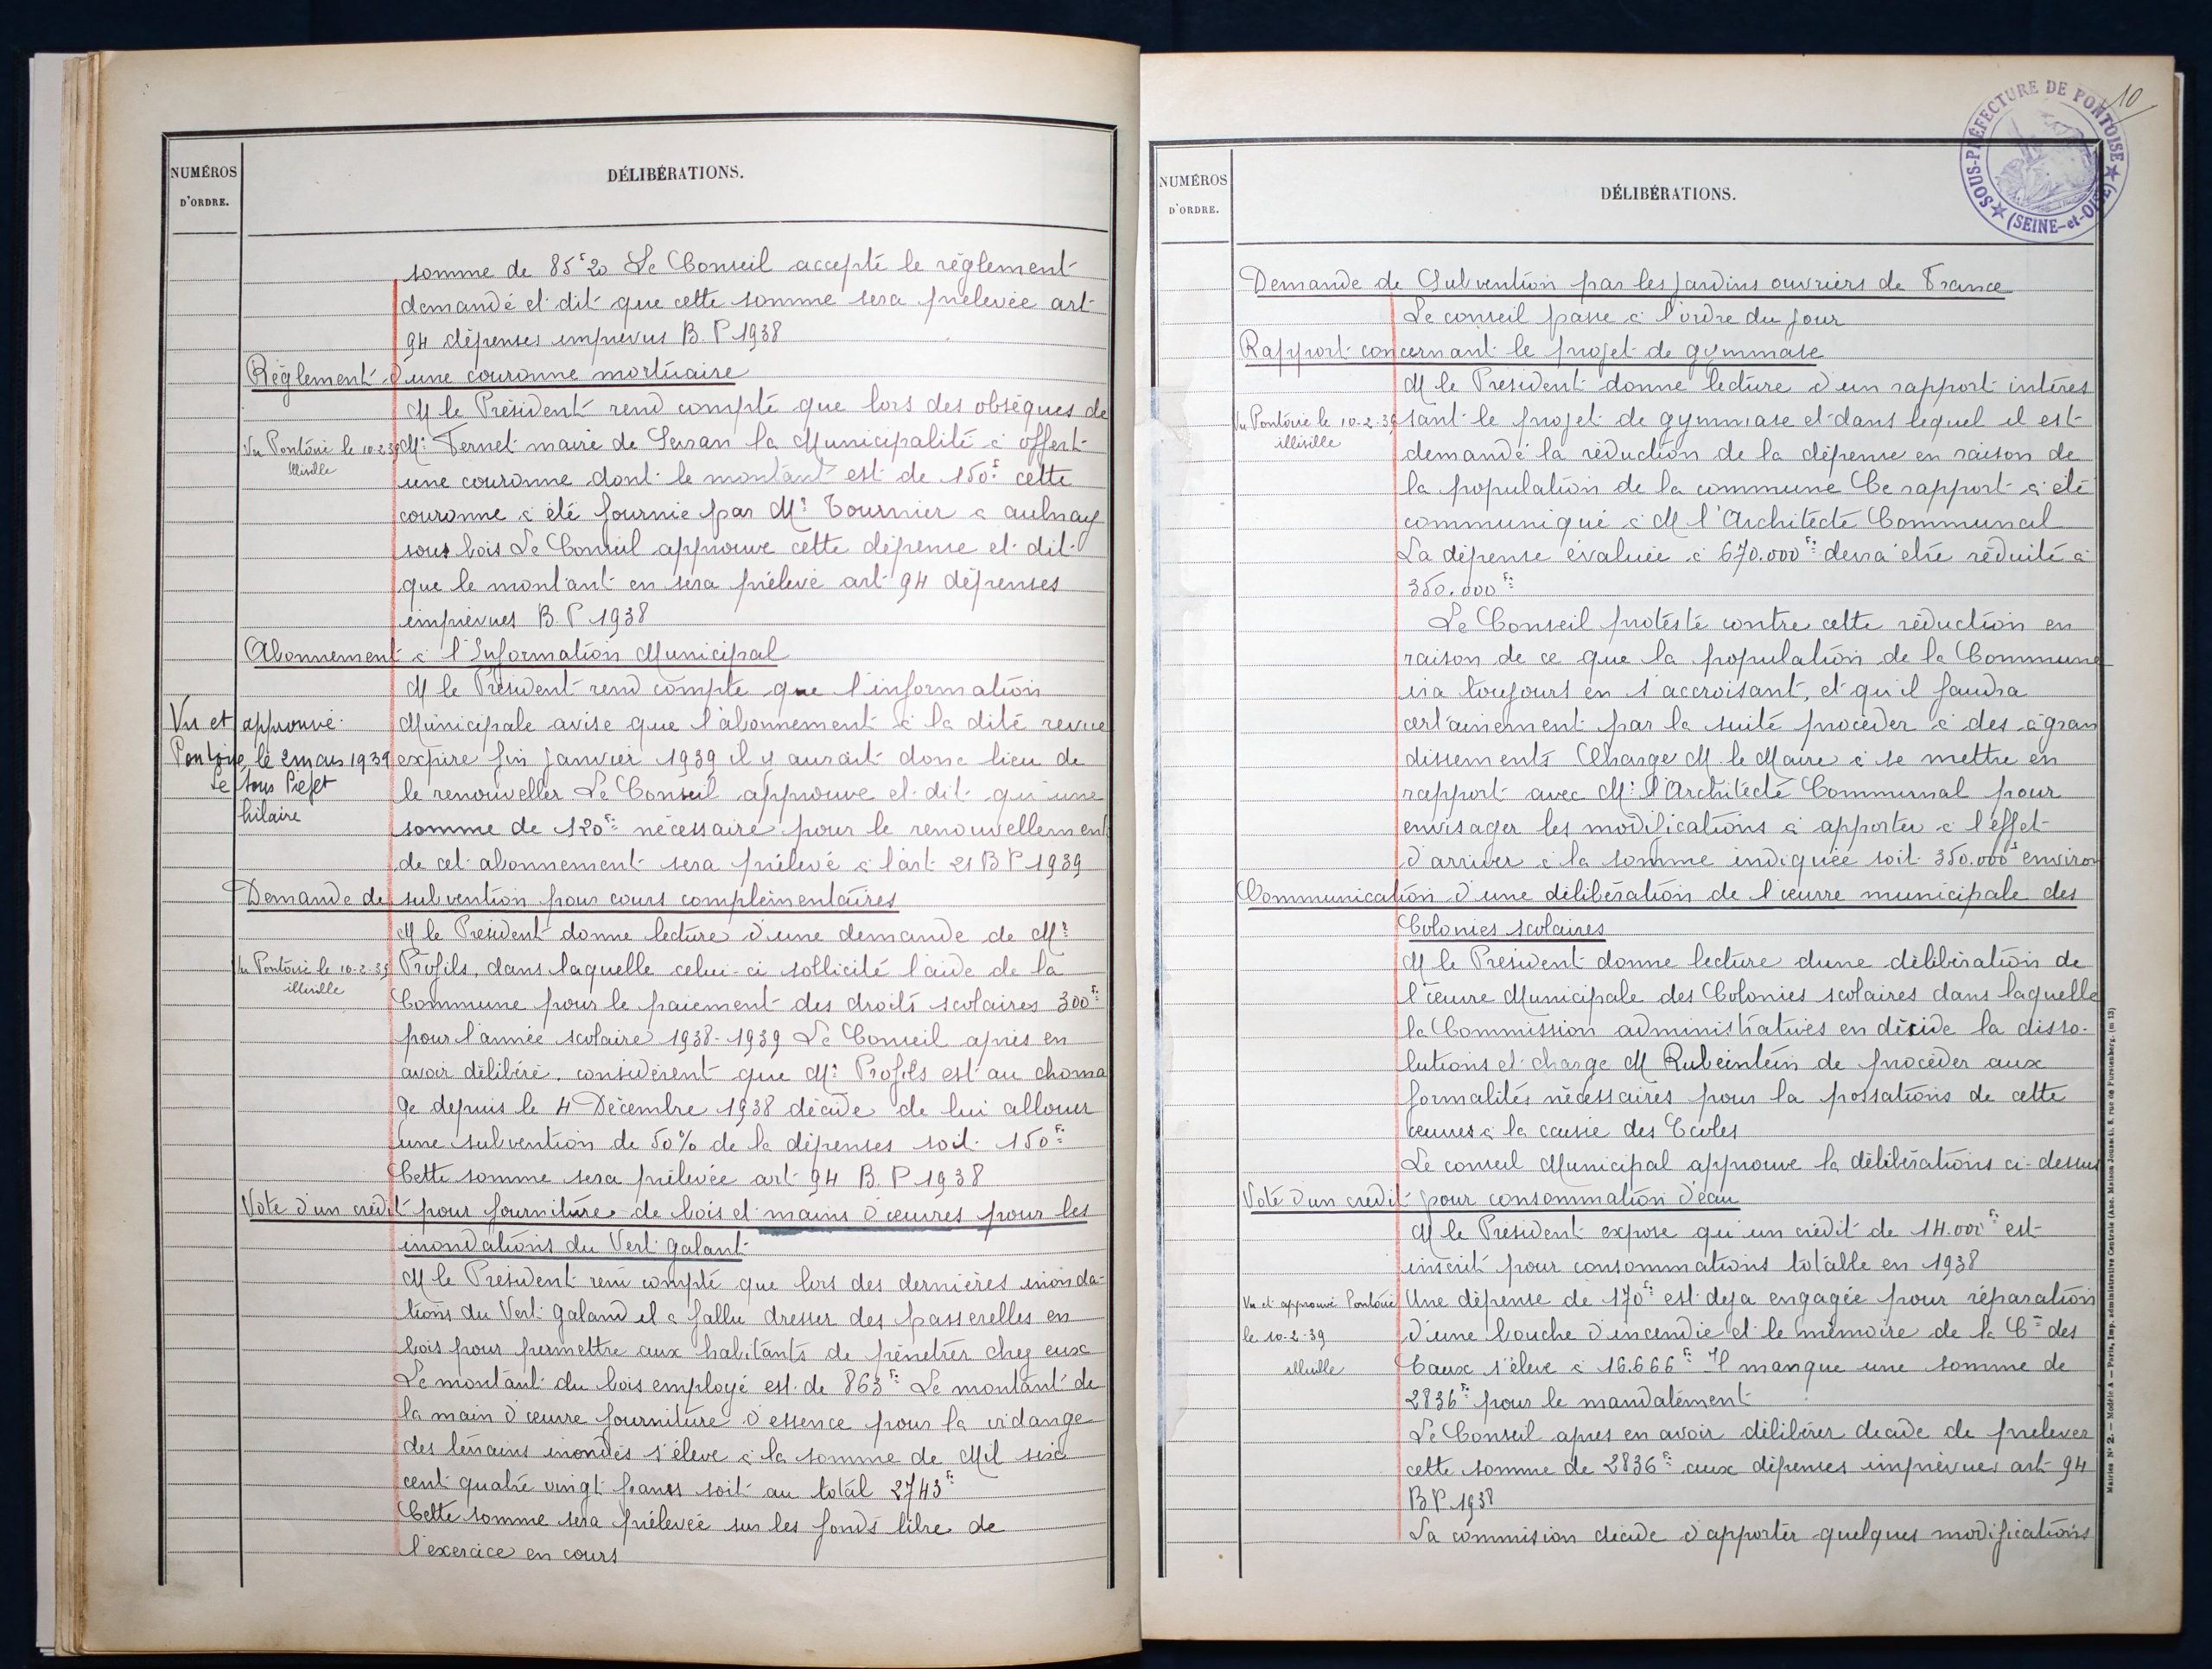 NUMÉROS
D'ORDRE.
DÉLIBÉRATIONS.
somme de 85f20 Le Conseil accepte le réglement
demandé et dit que cette somme sera prelevée art
94 dépenses imprevus B. P 1938
Réglement d'une couronne mortuaire
M le Président rend compte que lors des obséques de
Vu Pontoise le 10-2-39
illisille
Mr Fernet maire de Sevran la Municipalité à offert
une couronne dont le montant est de 150f cette
couronne à été fournie par Mr Tournier à aulnay
sous bois Le Conseil approuve cette dépense et dit
que le montant en sera prélevé art 94 dépenses
imprévues B. P 1938
Abonnement à l'Information Municipal
M le Président rend compte que l'information
Vu et approuvé
Pontoise, le 2 mars 1939
Le sous Préfet
hilaire
Municipale avise que l'abonnement à la dite revue
expire fin Janvier 1939 il y aurait donc lieu de
le renouveller Le Conseil approuve et dit qu'une
somme de 120fr nécessaire pour le renouvellement
de cet abonnement sera prélevé à l'art 21 B P 1939
Demande de subvention pour cours complémentaires
M le Président donne lecture d'une demande de Mr
Vu Pontoise le 10-2-39
illisille
Profils, dans laquelle celui-ci sollicite l'aide de la
Commune pour le paiement des droits scolaires 300fr
pour l'année scolaire 1938-1939 Le Conseil après en
avoir délibéré, considérent que Mr Profils est au choma
ge depuis le 4 Décembre 1938 décide de lui allouer
une subvention de 50% de la dépenses soit 150fr
Cette somme sera prélevée art 94 B. P 1938
Vote d'un crédit pour fournitures de bois et mains d'œuvres pour les
inondations du Vert galant
M le Président rend compte que lors des dernières inonda-
tions du Vert Galand il a fallu dresser des passerelles en
bois pour permettre aux habitants de pénetrer chez eux
Le montant du bois employé est de 863fr Le montant de
la main d'œuvre fourniture d'essence pour la vidange
des terrains inondés s'élève à la somme de Mil six
cent quatre vingt francs soit au total 2743fr
Cette somme sera prélevée sur les fonds libre de
l'exercice en cours
10
SOUS-PRÉFECTURE DE PONTOISE
(SEINE-et-OISE)
NUMÉROS
D'ORDRE.
DÉLIBÉRATIONS.
Demande de Subvention par les Jardins ouvriers de France
Le conseil passe à l'ordre du jour
Rapport concernant le projet de gymnase
M le President donne lecture d'un rapport intéres
Vu Pontoise le 10-2-39
illisille
sant le projet de gymnase et dans lequel il est
demandé la réduction de la dépense en raison de
la population de la commune Ce rapport à été
communiqué à M l'Architecte Communal
La dépense évaluée à 670.000fr devra être réduite à
350.000fr
Le Conseil proteste contre cette réduction en
raison de ce que la population de la Commune
ira toujours en s'accroisant, et qu'il faudra
certainement par la suite procéder à des agran
dissements Charge M. le Maire à se mettre en
rapport avec Mr l'Architecte Communal pour
envisager les modifications à apporter à l'effet
d'arriver à la somme indiquée soit 350.000f environ
Communication d'une délibération de l'œuvre municipale des
Colonies scolaires
M le President donne lecture dune délibération de
l'œuvre Municipale des Colonies scolaires dans laquelle
la Commission administratives en décide la disso-
lutions et charge M Rubeintein de procéder aux
formalités nécessaires pour la possations de cette
œuvres à la caisse des Ecoles
Le conseil Municipal approuve la délibérations ci-dessus
Vote d'un crédit pour consommation d'eau
M le Président expose qu'un crédit de 14.000fr est
inscrit pour consommations totalle en 1938
Vu et approuvé Pontoise
le 10-2-39
illisille
Une dépense de 170fr est deja engagée pour réparation
d'une bouche d'incendie et le mémoire de la Cie des
Eaux s'éleve à 16.666fr Il manque une somme de
2836fr pour le mandatement
Le Conseil apres en avoir délibérer decide de prelever
cette somme de 2836fr aux dépenses imprévues art 94
B P 1938
La commision décide d'apporter quelques modifications
Mairies N° 2. — Modèle A — Paris, Imp. administrative Centrale (Anc. Maison Jousset), 8, rue de Furstenberg. (m 13)